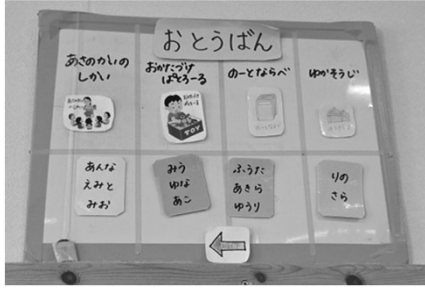 おとうばん
あさのかいの
しかい
おかたづけ
ぱとろーる
のーとならべ
ゆかそうじ
TOY
あんな
えみと
みお
みう
ゆな
あこ
ふうた
あきら
ゆうり
りの
さら